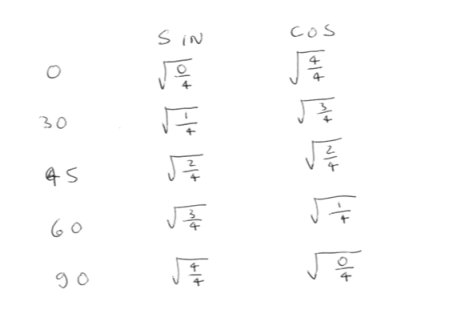 SIN COS
0 √0/4 √4/4
30 √1/4 √3/4
45 √2/4 √2/4
60 √3/4 √1/4
90 √4/4 √0/4